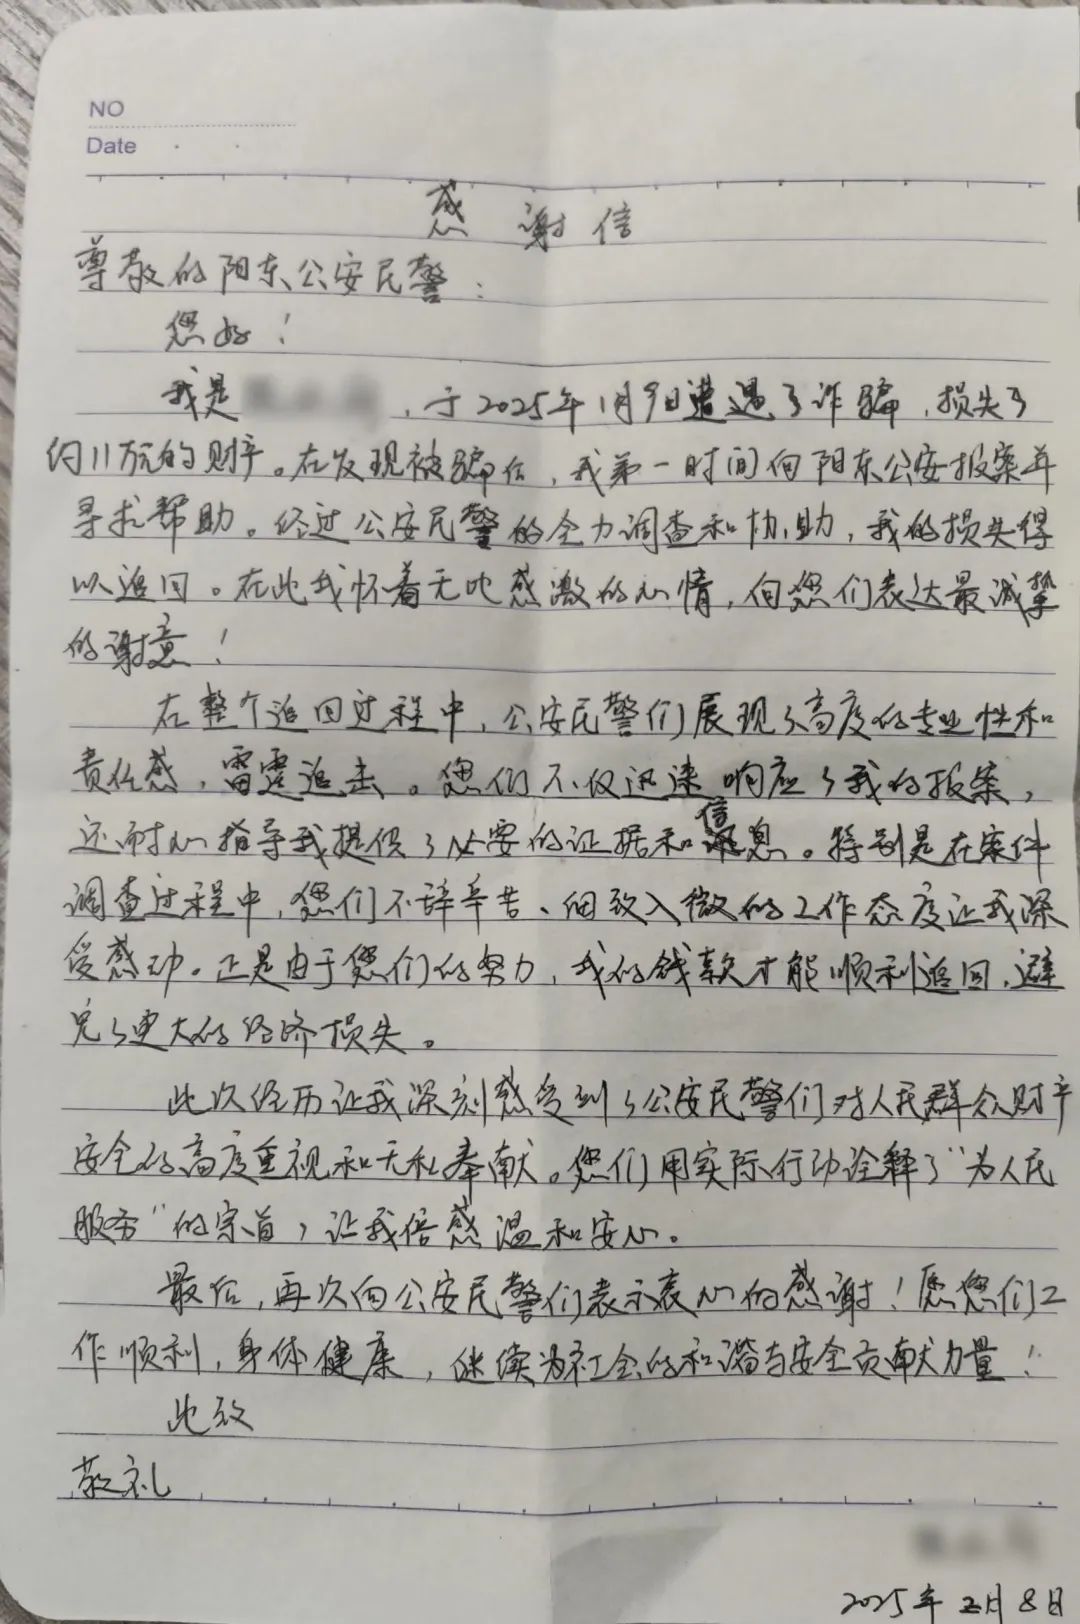 NO
Date
感谢信
尊敬的阳东公安民警：
您好！
我是，于2025年1月9日遭遇了诈骗，损失了
约11万元的财产。在发现被骗后，我第一时间向阳东公安报案并
寻求帮助。经过公安民警的全力调查和协助，我的损失得
以追回。在此我怀着无比感激的心情，向您们表达最诚挚
的谢意！
在整个追回过程中，公安民警们展现了高度的专业性和
责任感，雷霆追击。您们不仅迅速响应了我的报案，
还耐心指导我提供了必要的证据和信息。特别是在案件
调查过程中，您们不辞辛苦、细致入微的工作态度让我深
受感动。正是由于您们的努力，我的钱款才能顺利追回，避
免了更大的经济损失。
此次经历让我深刻感受到了公安民警们对人民群众财产
安全的高度重视和无私奉献。您们用实际行动诠释了“为人民
服务”的宗旨，让我倍感温和安心。
最后，再次向公安民警们表示衷心的感谢！愿您们工
作顺利，身体健康，继续为社会的和谐与安全贡献力量！
此致
敬礼
2025年2月8日